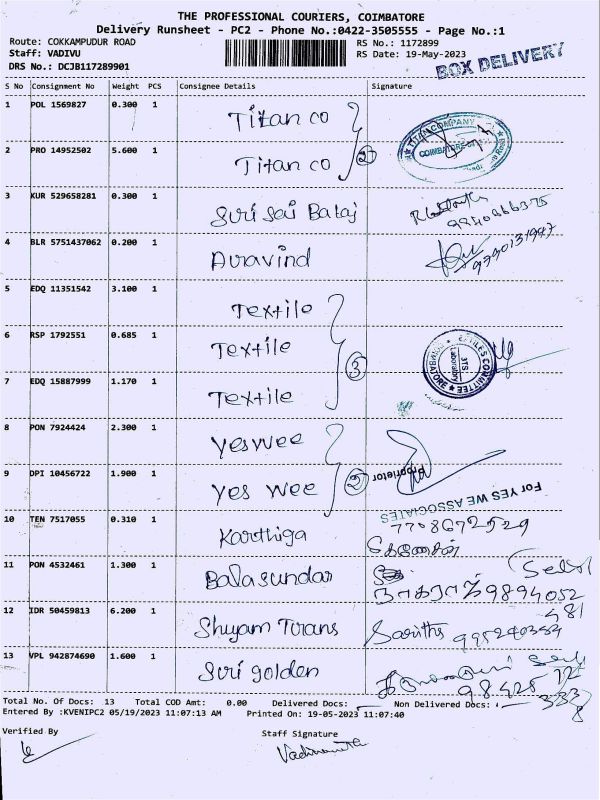 THE PROFESSIONAL COURIERS, COIMBATORE
Delivery Runsheet - PC2 - Phone No.:0422-3505555 - Page No.:1
Route: COKKAMPUDUR ROAD
RS No.: 1172899
Staff: VADIVU
RS Date: 19-May-2023
DRS No.: DCJB117289901
BOX DELIVERY
S No Consignment No Weight PCS Consignee Details Signature
1 POL 1569827 0.300 1 Titan co
2 PRO 14952502 5.600 1 Titan co 2
TITAN COMPANY
COIMBATORE
3 KUR 529658281 0.300 1 Suri Sai Balaj
4 BLR 5751437062 0.200 1 Aravind
5 EDQ 11351542 3.100 1 Textile
6 RSP 1792551 0.685 1 Textile 3
TEXTILES COMMITTEE
COIMBATORE
7 EDQ 15887999 1.170 1 Textile
8 PON 7924424 2.300 1 Yes wee
9 DPI 10456722 1.900 1 Yes wee 2
Proprietor
For YES WE ASSOCIATES
10 TEN 7517055 0.310 1 Karthiga 7708672529
11 PON 4532461 1.300 1 Bala sundar
நாகராஜ் 9894052
481
12 IDR 50459813 6.200 1 Shyam Turans
13 VPL 942874690 1.600 1 Suri golden
Total No. Of Docs: 13 Total COD Amt: 0.00 Delivered Docs: Non Delivered Docs:
Entered By :KVENIPC2 05/19/2023 11:07:13 AM Printed On: 19-05-2023 11:07:40
Verified By
Staff Signature